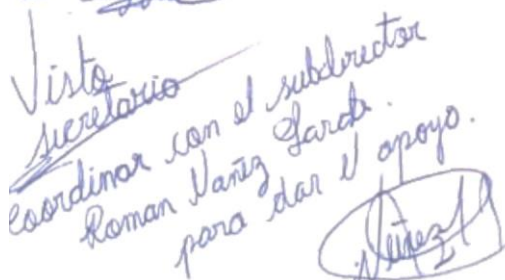 Visto
secretario
coordinar con el subdirector
Roman Nañez Garda.
para dar el apoyo.
Nuñez